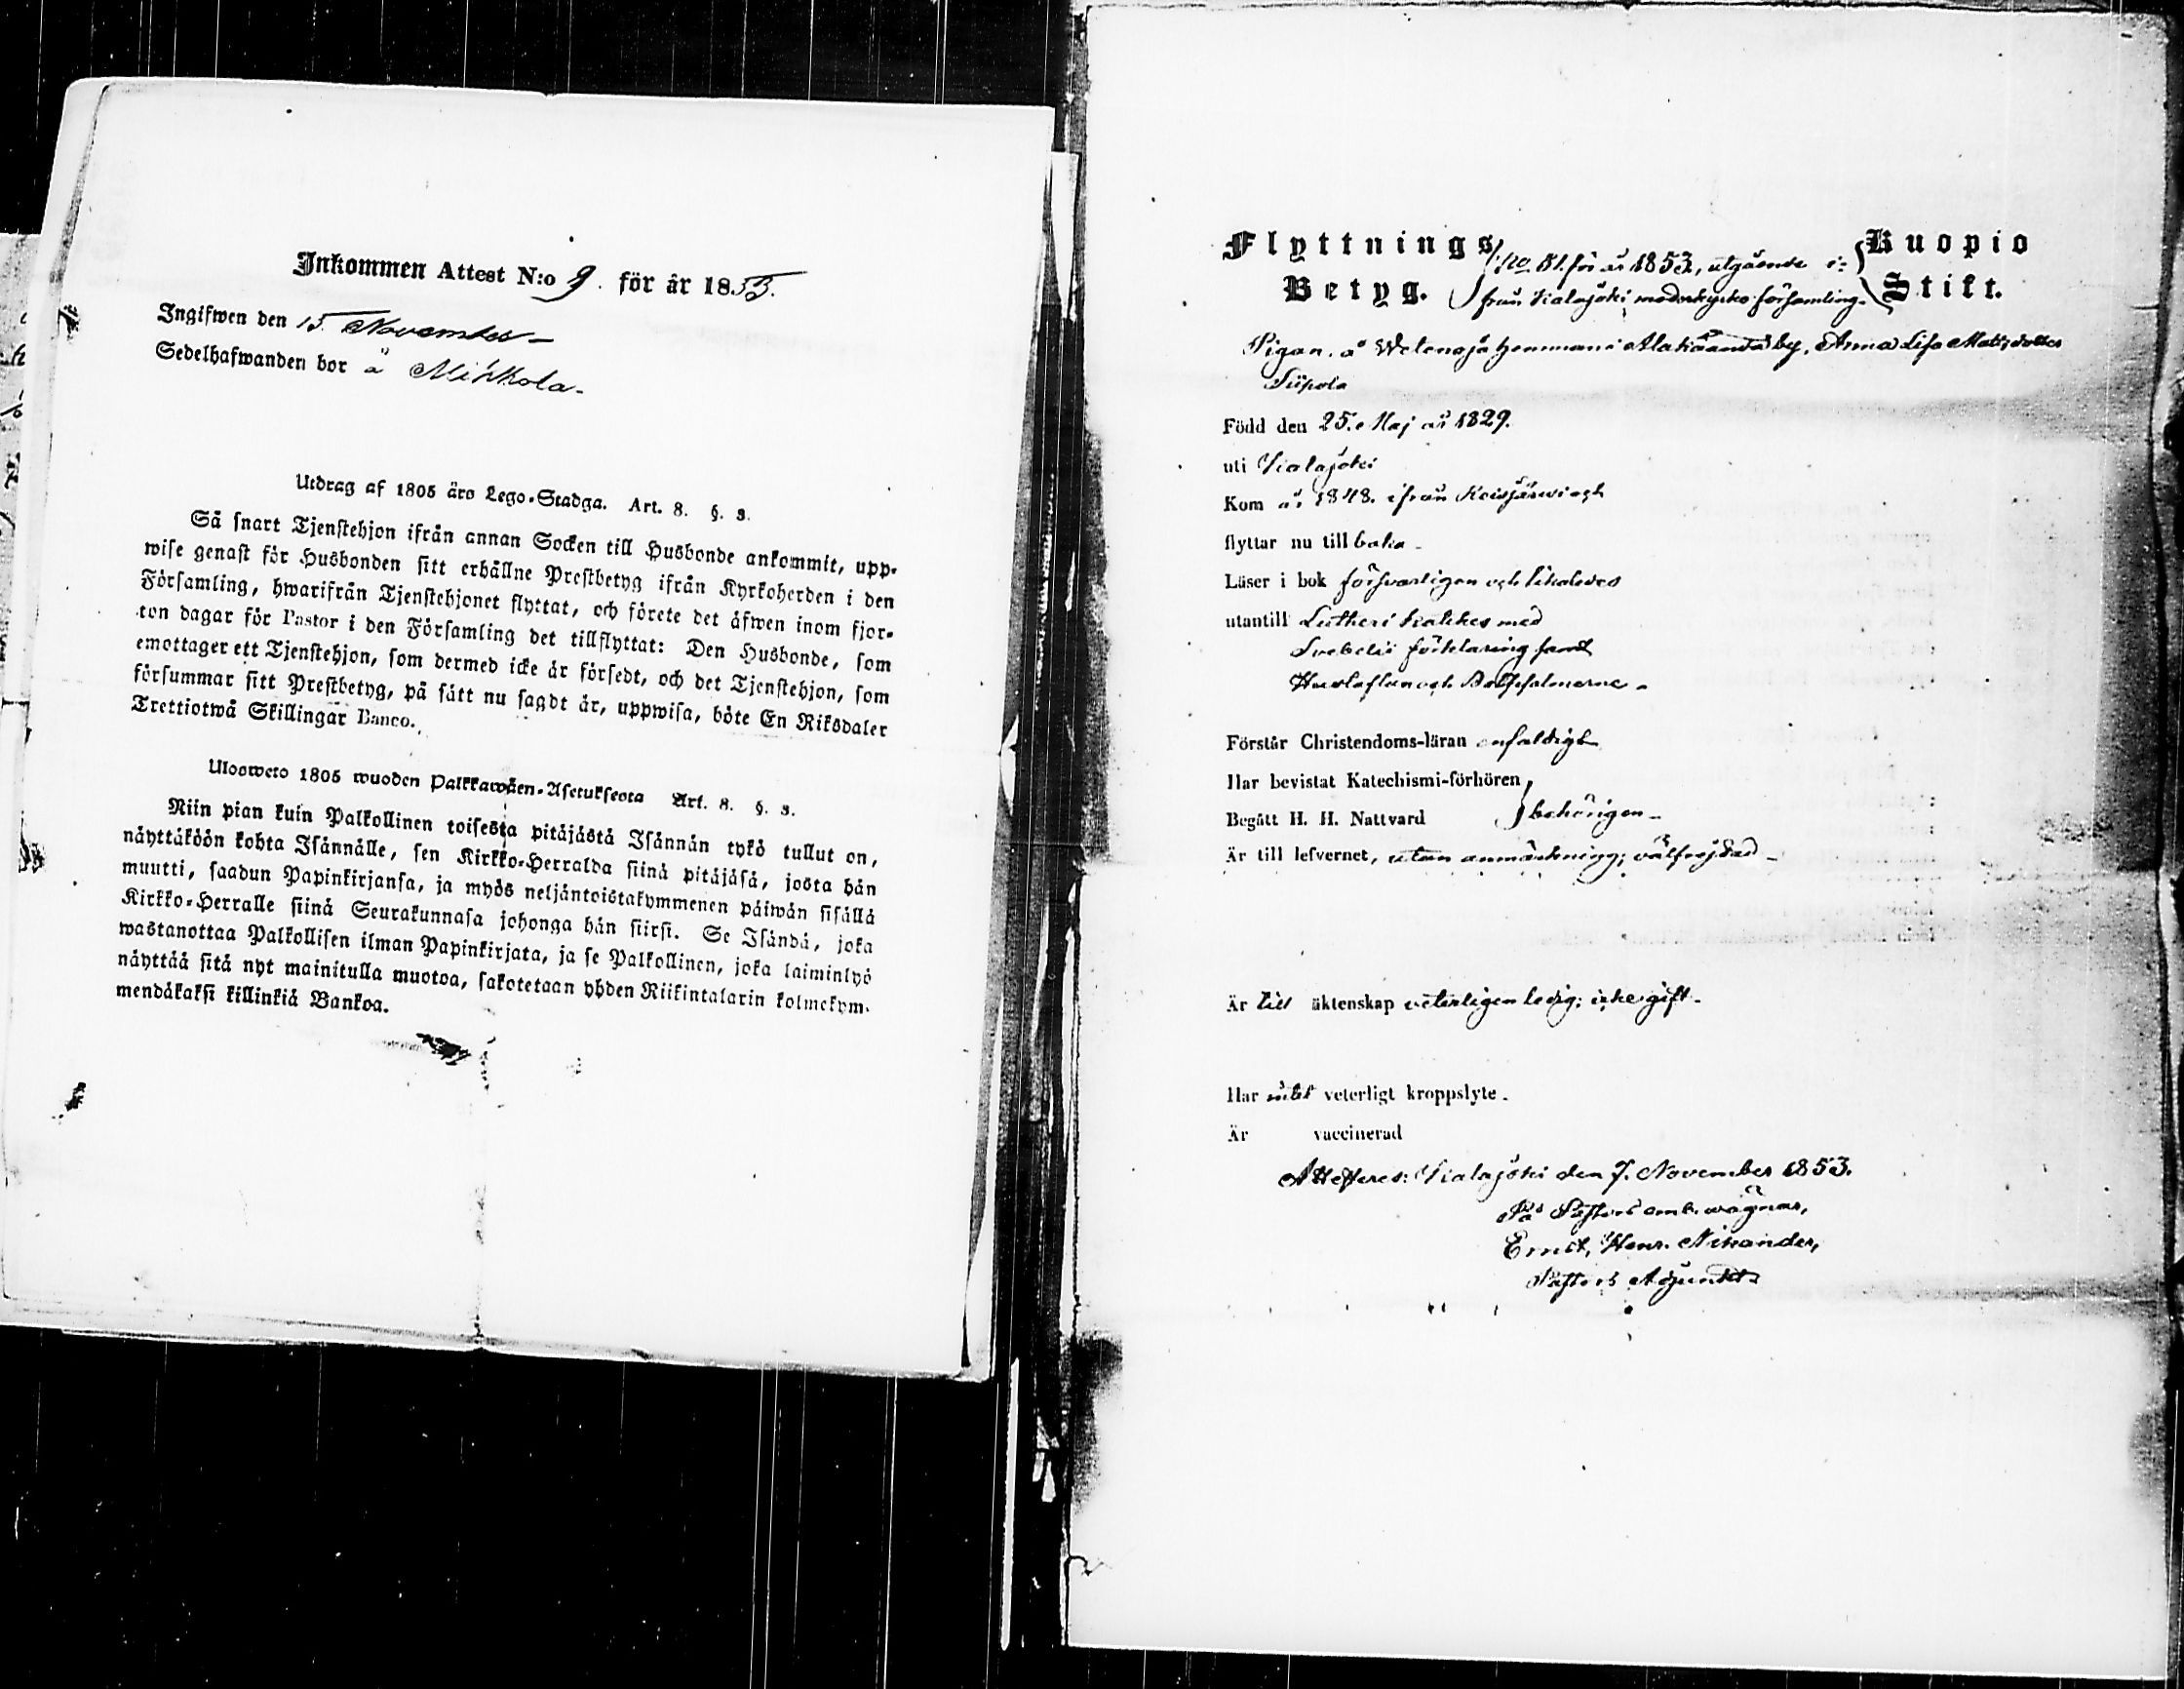 Inkommen Attest N:o 9. för år 1853.
Ingifwen den 15. November
Sedelhafwanden bor å Mikkola.
Utdrag af 1805 års Lego-Stadga. Art. 8. §. 3.
Så snart Tjenstehjon ifrån annan Socken till Husbonde ankommit, upp-
wise genast för Husbonden sitt erhållne Prestbetyg ifrån Kyrkoherden i den
Församling, hwarifrån Tjenstehjonet flyttat, och förete det åfwen inom fjor-
ton dagar för Pastor i den Församling det tillflyttat: Den Husbonde, som
emottager ett Tjenstehjon, som dermed icke är försedt, och det Tjenstehjon, som
försummar sitt Prestbetyg, på sått nu sagdt är, uppwisa, böte En Riksdaler
Trettiotwå Skillingar Banco.
Ulosweto 1805 wuoden Palkkawäen-Asetuksesta Art. 8. §. 3.
Niin pian kuin Palkollinen toisesta pitäjästä Isännän tykö tullut on,
näyttäköön kohta Isännälle, sen Kirkko-Herralda siinä pitäjäsä, josta hän
muutti, saadun Papinkirjansa, ja myös neljäntoistakymmenen päiwän sisällä
Kirkko-Herralle siinä Seurakunnasa johonga hän siirsi. Se Isändä, joka
wastanottaa Palkollisen ilman Papinkirjata, ja se Palkollinen, joka laiminlyö
näyttää sitä nyt mainitulla muotoa, sakotetaan yhden Riikintalarin kolmekym-
mendäkaksi killinkiä Bankoa.
Flyttnings No 51. för år 1853, utgående i: Kuopio
Betyg. från Kalajoki moderkyrko församling. Stift.
Pigan å Wetenoja hemman i Alakääntä by, Anna Lisa Mattsdotter
Siipola
Född den 25. Maj år 1829.
uti Kalajoki
Kom år 1848. ifrån Reisjärwi och
flyttar nu till baka
Läser i bok försvarligen och likaledes
utantill Lutheri katekes med
Svebelii förklaring samt
Hustaflan och Botpsalmerne
Förstår Christendoms-läran enfaldigt
Har bevistat Katechismi-förhören
Begått H. H. Nattvard behörigen
Är till lefvernet, utan anmärkning; välfrejdad
Är till äktenskap veterligen ledig; icke gift.
Har intet veterligt kroppslyte.
Är vaccinerad
Attesteres: Kalajoki den 7. November 1853.
På Pastors emb. wägnar,
Ernst, Henr. Nikander,
Pastors Adjunkt